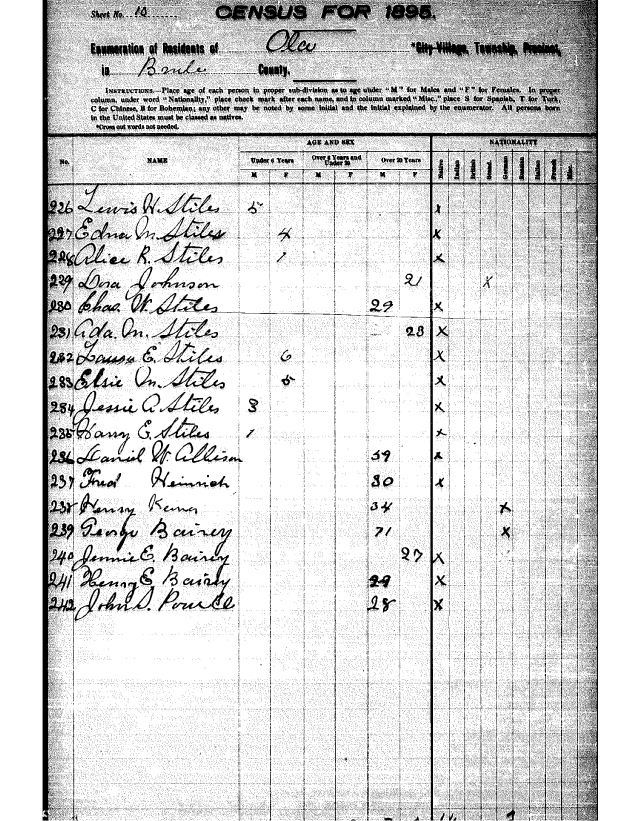 Sheet No. 10
CENSUS FOR 1895.
Enumeration of Residents of Ola *City, Village, Township, Precinct,
in Brule County.
INSTRUCTIONS.—Place age of each person in proper sub-division as to age under "M" for Males and "F" for Females. In proper
column, under word "Nationality," place check mark after each name, and in column marked "Misc." place S for Spanish, T for Turk,
C for Chinese, B for Bohemian; any other may be noted by some initial and the initial explained by the enumerator. All persons born
in the United States must be classed as natives.
*Cross out words not needed.
AGE AND SEX NATIONALITY
No. NAME Under 6 Years Over 6 Years and Under 20 Over 20 Years
M F M F M F
226 Lewis H. Stiles 5 x
227 Edna M. Stiles 4 x
228 Alice R. Stiles 1 x
229 Dora Johnson 21 x
230 Chas. W. Stiles 29 x
231 Ada. M. Stiles 28 x
232 E. Stiles 6 x
233 Elsie M. Stiles 5 x
234 Jessie A. Stiles 3 x
235 Harry E. Stiles 1 x
236 Daniel W. Allison 59 x
237 Fred Heinrich 30 x
238 Henry 34 x
239 George Bairey 71 x
240 Jennie E. Bairey 27 x
241 Henry E. Bairey 29 x
242 John S. 28 x